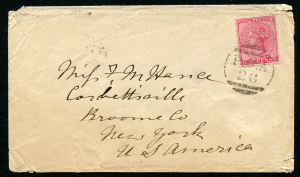 Miss F. M. Hance
Corbettsville
Broome Co
New York
U S America
26